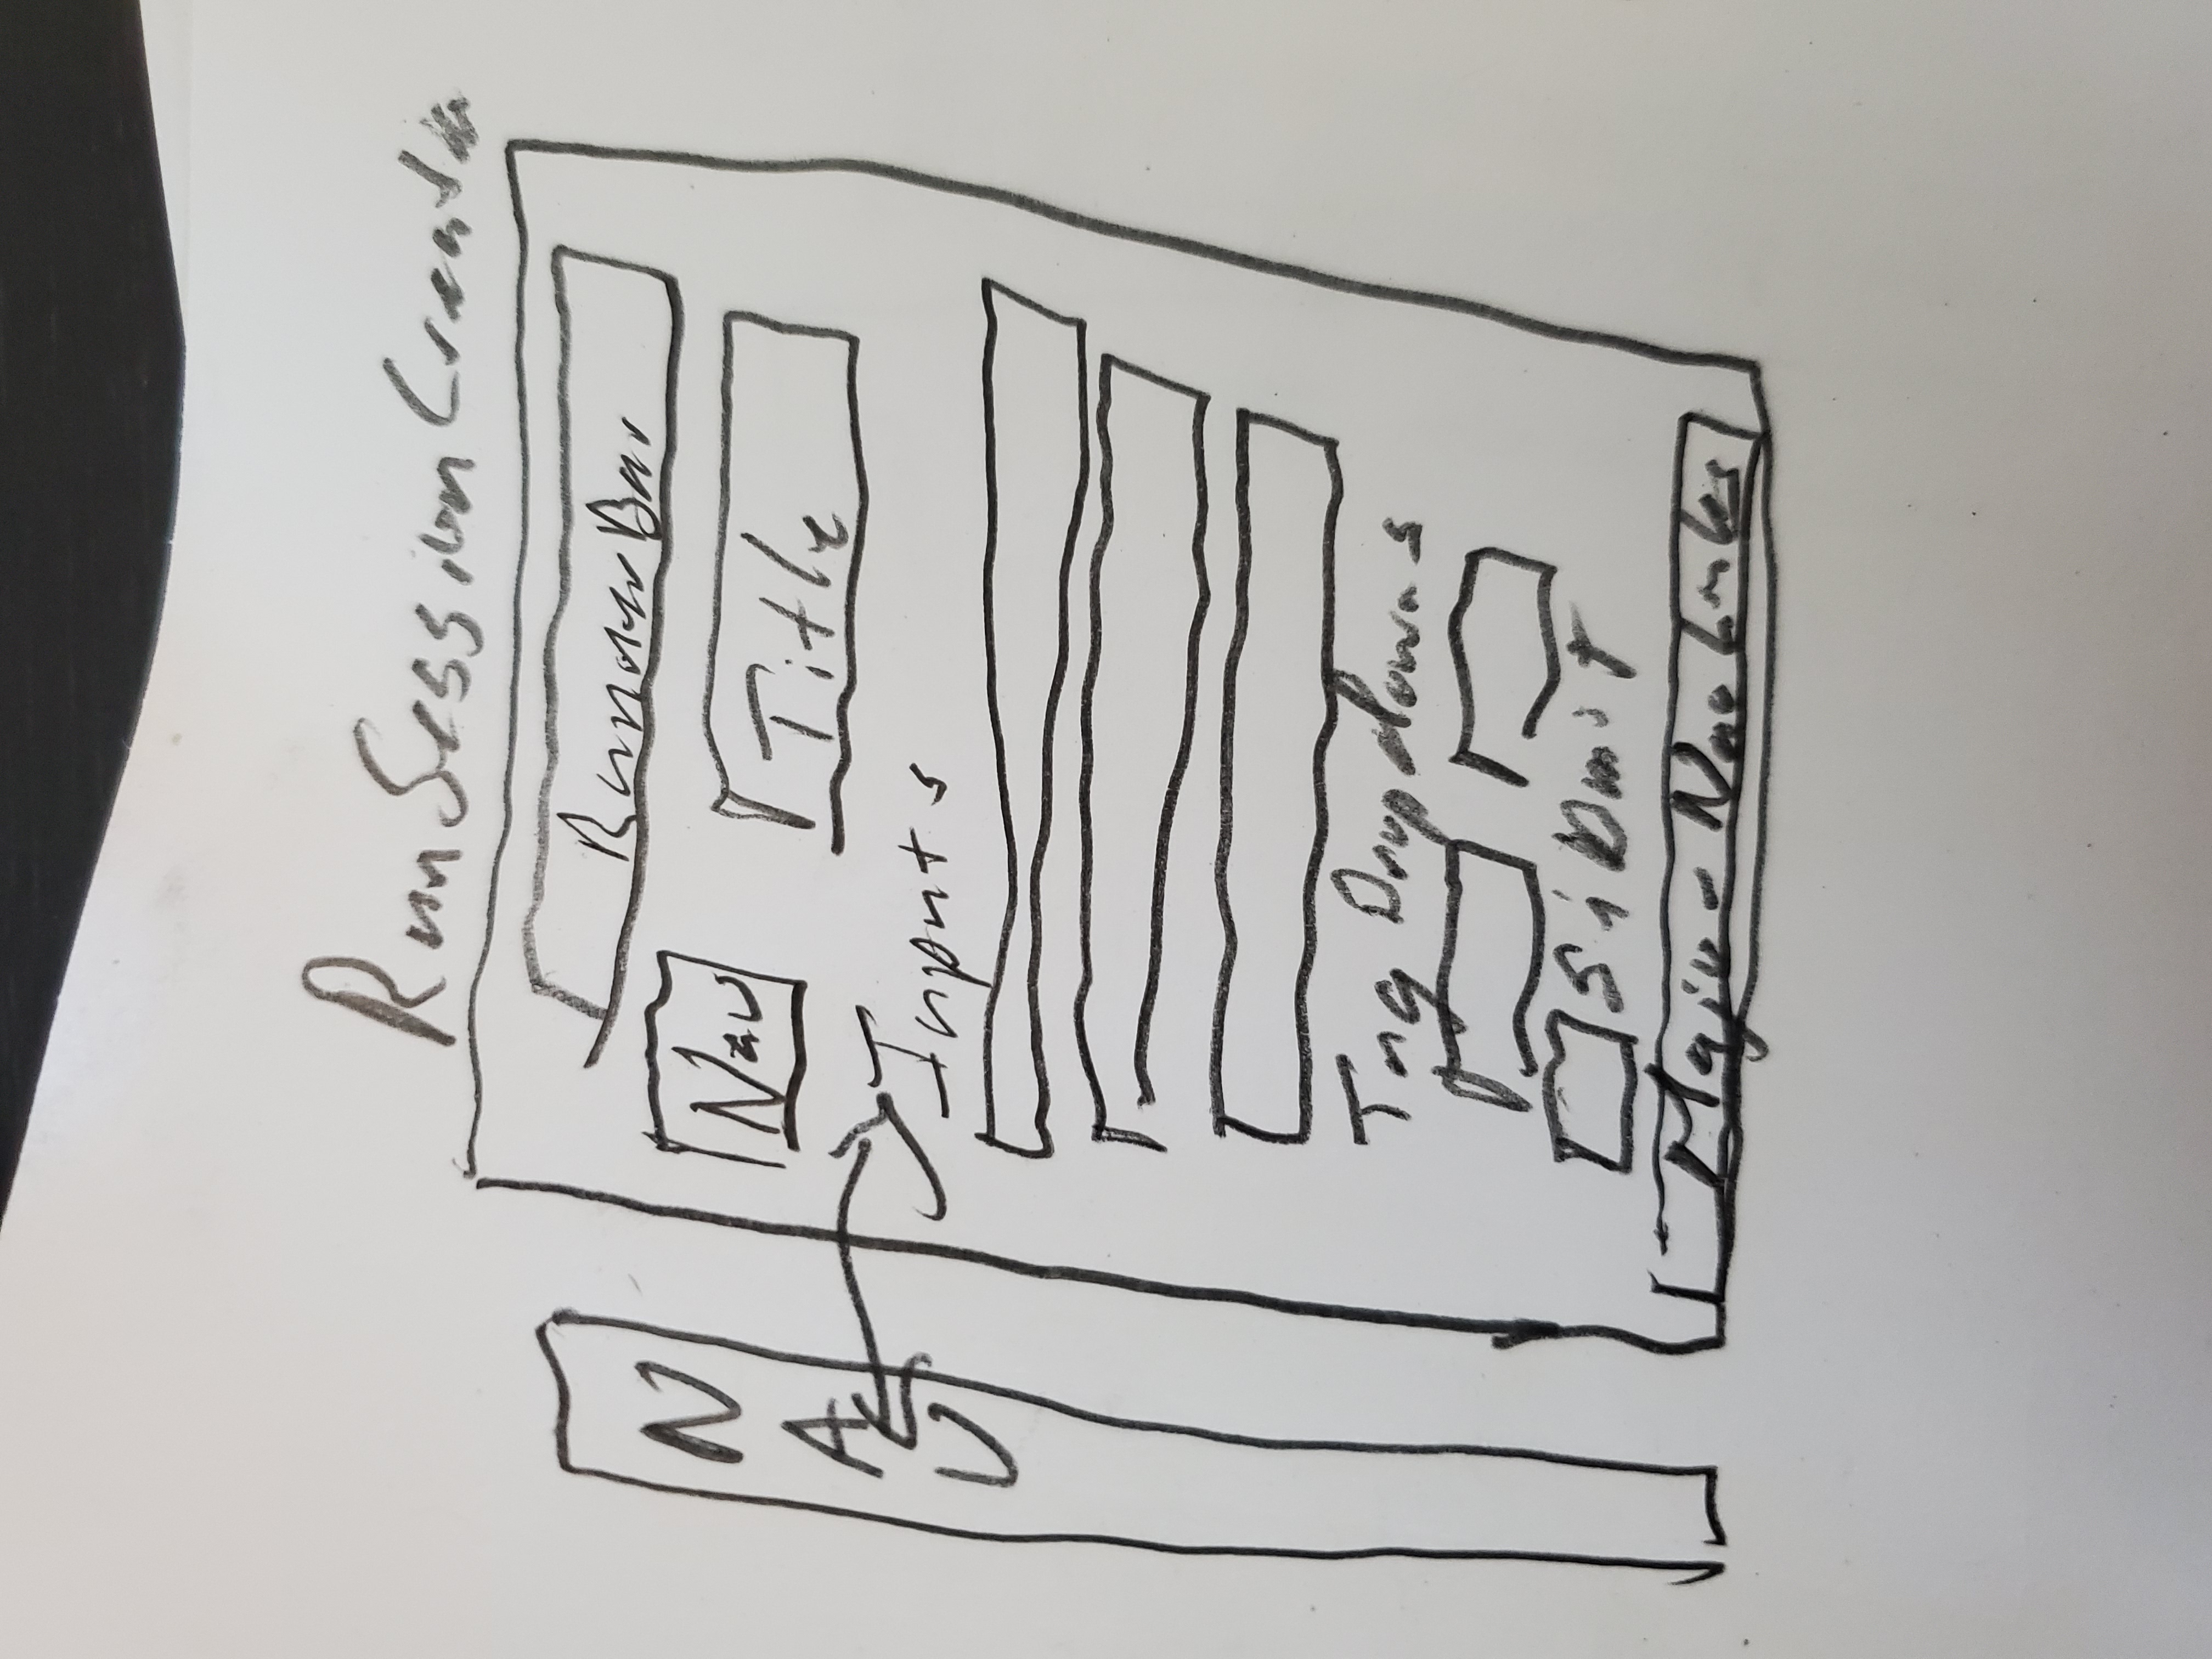 Run Session Creation
Runner Bar
Nav
Title
NAV
Inputs
Tag Dropdowns
Submit
Major Nav Links